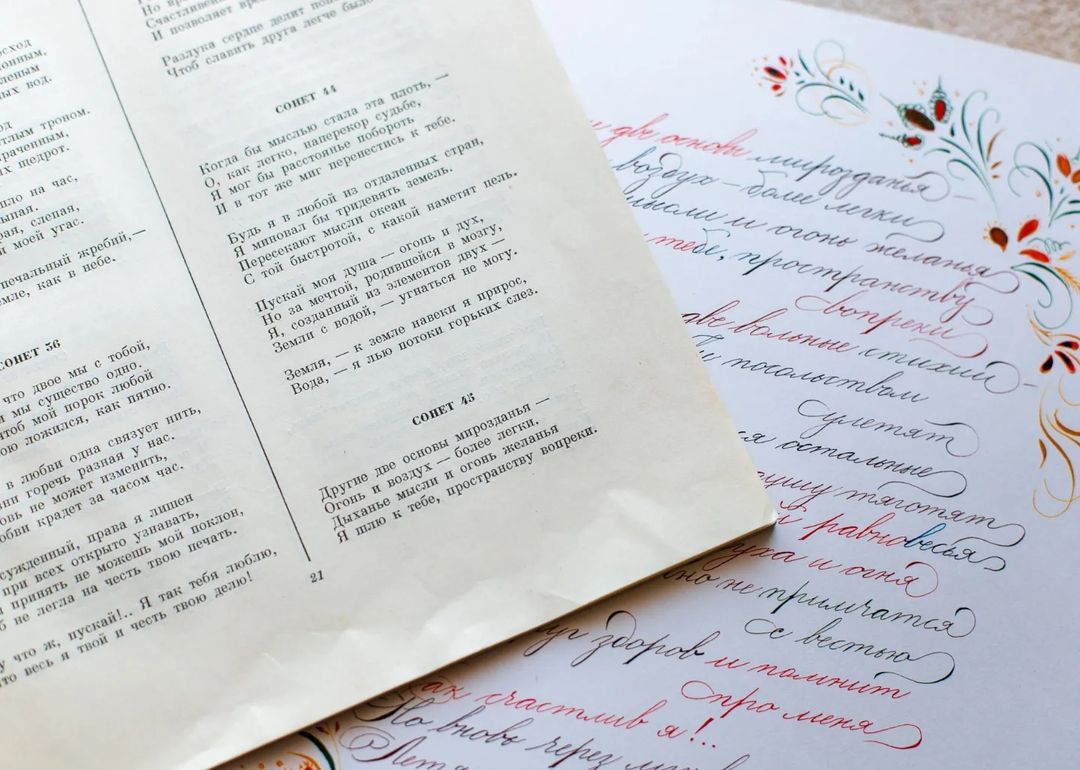 Но вр
Счастливе
И позволяет вре
Разлука сердце делит по
Чтоб славить друга легче был
СОНЕТ 44
Когда бы мыслью стала эта плоть, —
О, как легко, наперекор судьбе,
Я мог бы расстоянье побороть
И в тот же миг перенестись к тебе.
Будь я в любой из отдаленных стран,
Я миновал бы тридевять земель.
Пересекают мысли океан
С той быстротой, с какой наметят цель.
Пускай моя душа — огонь и дух,
Но за мечтой, родившейся в мозгу,
Я, созданный из элементов двух —
Земли с водой, — угнаться не могу.
Земля, — к земле навеки я прирос,
Вода, — я лью потоки горьких слез.
СОНЕТ 45
Другие две основы мирозданья —
Огонь и воздух — более легки,
Дыханье мысли и огонь желанья
Я шлю к тебе, пространству вопреки.
21
осход
леным
ых вод.
од
тлым троном.
траченным,
их щедрот.
ило на час,
ыпая.
рая, слепая,
й моей угас.
печальный жребий,—
емле, как в небе.
СОНЕТ 36
что двое мы с тобой,
и мы существо одно.
чтоб мой порок любой
ою ложился, как пятно.
в любви одна связует нить,
зни горечь разная у нас.
овь не может изменить,
юбви крадет за часом час.
сужденный, права я лишен
при всех открыто узнавать,
принять не можешь мой поклон,
б не легла на честь твою печать.
у что ж, пускай!.. Я так тебя люблю,
то весь я твой и честь твою делю!
две основы мирозданья —
воздух — более легки
мысли и огонь желанья
тебе, пространству
вопреки
две вольные стихии —
посольством
улетят
остальные
тяготят
равновесья
уха и огня
не примчатся
с вестью
друг здоров и помнит
про меня
ак счастлив я!..
Но вновь через
Летя